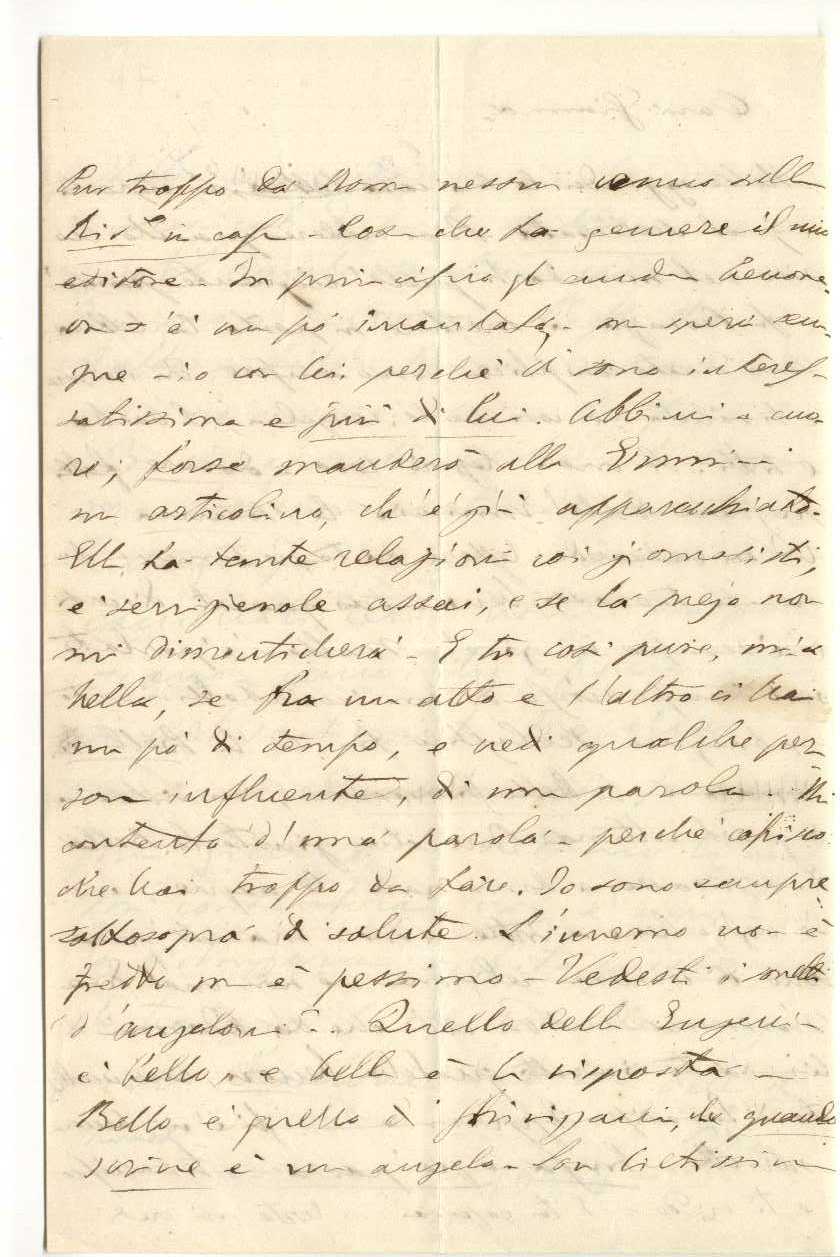 Pur troppo da Roma nessun cenno sulla
in casa - Cosa che fa gemere il mio
editore - In principio gli andava benone,
ora s'è un po' - ma spera sem-
pre - io con lui perchè ci sono interes-
satissima e più di lui. Abbimi a cuo-
re; forse manderò alla
un articolino, ch'è già apparecchiato.
Ella ha tante relazioni coi giornalisti,
è servizievole assai, e se la prego non
mi dimenticherà - E tu così pure, mia
bella, se fra un atto e l'altro ci hai
un pò di tempo, e vedi qualche per
sona influente, di una parola. Mi
contento d'una parola - perchè capisco
che hai troppo da fare. Io sono sempre
sottosopra di salute. L'inverno non è
freddo ma è pessimo - Vedesti i
d'angeloni? - Quello della Eugenia
è bello, e bella è la risposta -
Bello è quello di che quando
scrive è un angelo - Son lietissima